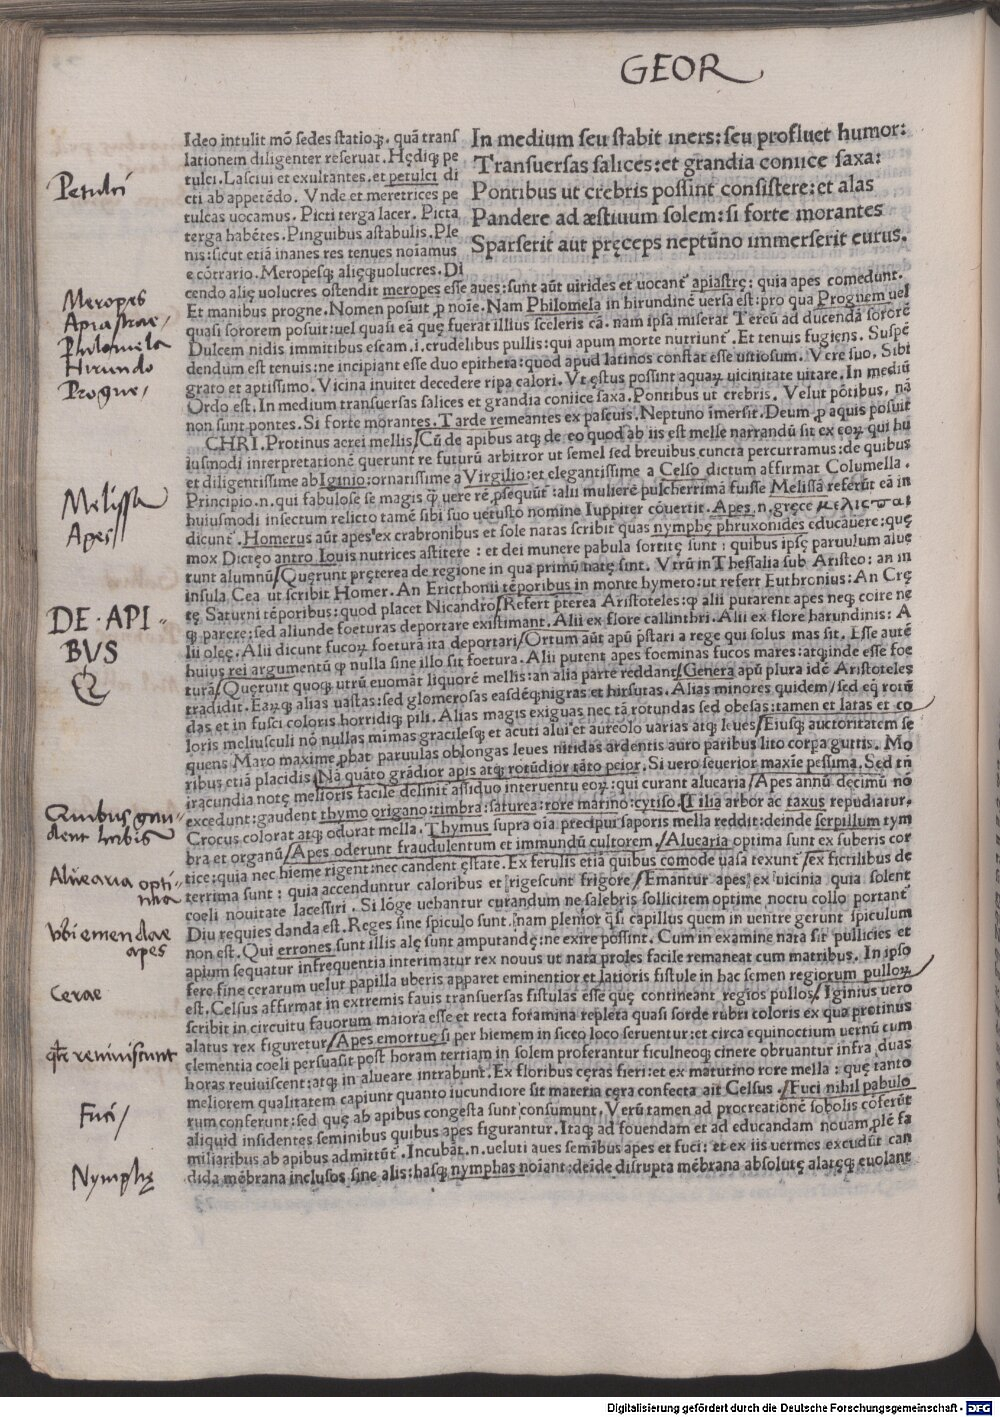 GEOR
In medium seu stabit iners: seu profluet humor:
Transuersas salices: et grandia coniice saxa:
Pontibus ut crebris possint consistere: et alas
Pandere ad æstiuum solem: si forte morantes
Sparserit aut pręceps neptũno immerserit eurus.
Ideo intulit mõ sedes statioq;. quã trans
lationem diligenter reseruat. Hędiq; pe
tulci. Lasciui et exultantes. et petulci di
cti ab appetẽdo. Vnde et meretrices pe
tulcas uocamus. Picti terga lacer. Picta
terga habẽtes. Pinguibus astabulis. Ple
nis: sicut etiã inanes res tenues noĩamus
e cõtrario. Meropesq; alięq; uolucres. Di
cendo alię uolucres ostendit meropes esse aues: sunt aũt uirides et uocant apiastrę: quia apes comedunt.
Et manibus progne. Nomen posuit ꝓ noĩe. Nam Philomela in hirundinẽ uersa est: pro qua Prognem uel
quasi sororem posuit: uel quasi eã quę fuerat illius sceleris cã. nam ipsa miserat Tereũ ad ducendã sororẽ
Dulcem nidis immitibus escam. i. crudelibus pullis: qui apum morte nutriunt. Et tenuis fugiens. Suspẽ
dendum est tenuis: ne incipiant esse duo epitheta: quod apud latinos constat esse uitiosum. Vere suo. Sibi
grato et aptissimo. Vicina inuitet decedere ripa calori. Vt ęstus possint aquaꝝ uicinitate uitare. In mediũ
Ordo est. In medium transuersas salices et grandia coniice saxa. Pontibus ut crebris. Velut põtibus, nã
non sunt pontes. Si forte morantes. Tarde remeantes ex pascuis. Neptuno ĩmersit. Deum ꝓ aquis posuit
CHRI. Protinus aerei mellis/ Cũ de apibus atq; de eo quod ab iis est melle narrandũ sit ex eoꝝ qui hu
iusmodi interpretationẽ querunt re futurũ arbitror ut semel sed breuibus cuncta percurramus: de quibus
et diligentissime ab Iginio: ornatissime a Virgilio: et elegantissime a Celso dictum affirmat Columella.
Principio. n. qui fabulose se magis q̃ uere rẽ ꝓsequũt: alii mulierẽ pulcherrimã fuisse Melissã referũt eã in
huiusmodi insectum relicto tamẽ sibi suo uetusto nomine Iuppiter cõuertit. Apes .n. gręce μελισσαι
dicunt. Homerus aũt apes ex crabronibus et sole natas scribit quas nymphę phruxonides educauere: quę
mox Dictęo antro Iouis nutrices astitere: et dei munere pabula sortitę sunt: quibus ipsę paruulum alue
runt alumnũ/ Quęrunt pręterea de regione in qua primũ natę sint. Vtrũ in Thessalia sub Aristeo: an in
insula Cea ut scribit Homer. An Ericthonii tẽporibus in monte hymeto: ut refert Euthronius: An Crę
tę Saturni tẽporibus: quod placet Nicandro/ Refert p̃terea Aristoteles: q alii putarent apes neq; coire ne
q; parere: sed aliunde foeturas deportare existimant. Alii ex flore callinthri. Alii ex flore harundinis: A
lii olęę. Alii dicunt fucoꝝ foeturã ita deportari/ Ortum aũt apũ p̃stari a rege qui solus mas sit. Esse autẽ
huius rei argumentũ q nulla sine illo sit foetura. Alii putent apes foeminas fucos mares: atq; inde esse foe
turã/ Quęrunt quoq; utrũ euomãt liquorẽ mellis: an alia parte reddant/ Genera apũ plura idẽ Aristoteles
tradidit. Eaꝝq; alias uastas: sed glomerosas easdẽq; nigras et hirsutas. Alias minores quidem/ sed eq̃ rotũ
das et in fusci coloris horridiq; pili. Alias magis exiguas nec tã rotundas sed obesas: tamen et latas et co
loris meliusculi nõ nullas mimas gracilesq; et acuti alui et aureolo uarias atq; leues/ Eiusq; auctoritatem se
quens Maro maxime ꝓbat paruulas oblongas leues nitidas ardentis auro paribus lito corpa guttis. Mo
ribus etiã placidis/ Nã quãto grãdior apis atq; rotũdior tãto peior. Si uero seuerior maxie pessima. Sed tñ
iracundia notę melioris facile delinit assiduo interuentu eoꝝ: qui curant aluearia/ Apes annũ decimũ nõ
excedunt: gaudent thymo origano: timbra: saturea: rore marino: cytiso. Tilia arbor ac taxus repudiatur.
Crocus colorat atq; odorat mella. Thymus supra oia precipui saporis mella reddit: deinde serpillum tym
bra et organũ/ Apes oderunt fraudulentum et immundũ cultorem. Aluearia optima sunt ex suberis cor
tice: quia nec hieme rigent: nec candent ęstate. Ex ferulis etiã quibus comode uasa texunt/ ex fictilibus de
terrima sunt: quia accenduntur caloribus et rigescunt frigore/ Emantur apes ex uicinia quia solent
coeli nouitate lacessiri. Si lõge uehantur curandum ne salebris sollicitem optime noctu collo portant
Diu requies danda est. Reges sine spiculo sunt. nam plenior q̃si capillus quem in uentre gerunt spiculum
non est. Qui errones sunt illis alę sunt amputandę: ne exire possint. Cum in examine nata sit pullicies et
apium sequatur infrequentia interimatur rex nouus ut nata proles facile remaneat cum matribus. In ipso
fere fine cerarum uelut papilla uberis apparet eminentior et latioris fistule in hac semen regiorum pulloꝝ
est. Celsus affirmat in extremis fauis transuersas fistulas esse quę contineant regios pullos/ Iginius uero
scribit in circuitu fauorum maiora esse et recta foramina repleta quasi sorde rubri coloris ex qua protinus
alatus rex figuretur/ Apes emortuę si per hiemem in sicco loco seruentur: et circa equinoctium uernũ cum
clementia coeli persuasit post horam tertiam in solem proferantur ficulneoq; cinere obruantur infra duas
horas reuiuiscent: atq; in alueare intrabunt. Ex floribus cęras fieri: et ex matutino rore mella: quę tanto
meliorem qualitatem capiunt quanto iucundiore sit materia cęra confecta ait Celsus. /Fuci nihil pabulo
rum conferunt: sed quę ab apibus congesta sunt consumunt. Verũ tamen ad procreationẽ sobolis cõferũt
aliquid insidentes seminibus quibus apes figurantur. Itaq; ad fouendam et ad educandam nouam ꝓlẽ fa
miliarius ab apibus admittũt. Incubãt .n. ueluti aues semĩbus apes et fuci: et ex iis uermes excudũt can
dida mẽbrana inclusos sine alis: hasq; nymphas noĩant: deĩde disrupta mẽbrana absolutę alatęq; euolant
Petulci
Meropes
Apiastrae/
Philomela
Hirundo
Progne/
Melissa
Apes
DE·API-
BVS
Quibus gau-
dent herbis
Aluearia opti-
ma
Vbi emendae
apes
Cerae
reuiuiscunt
Fuci/
Nymphę
Digitalisierung gefördert durch die Deutsche Forschungsgemeinschaft - DFG